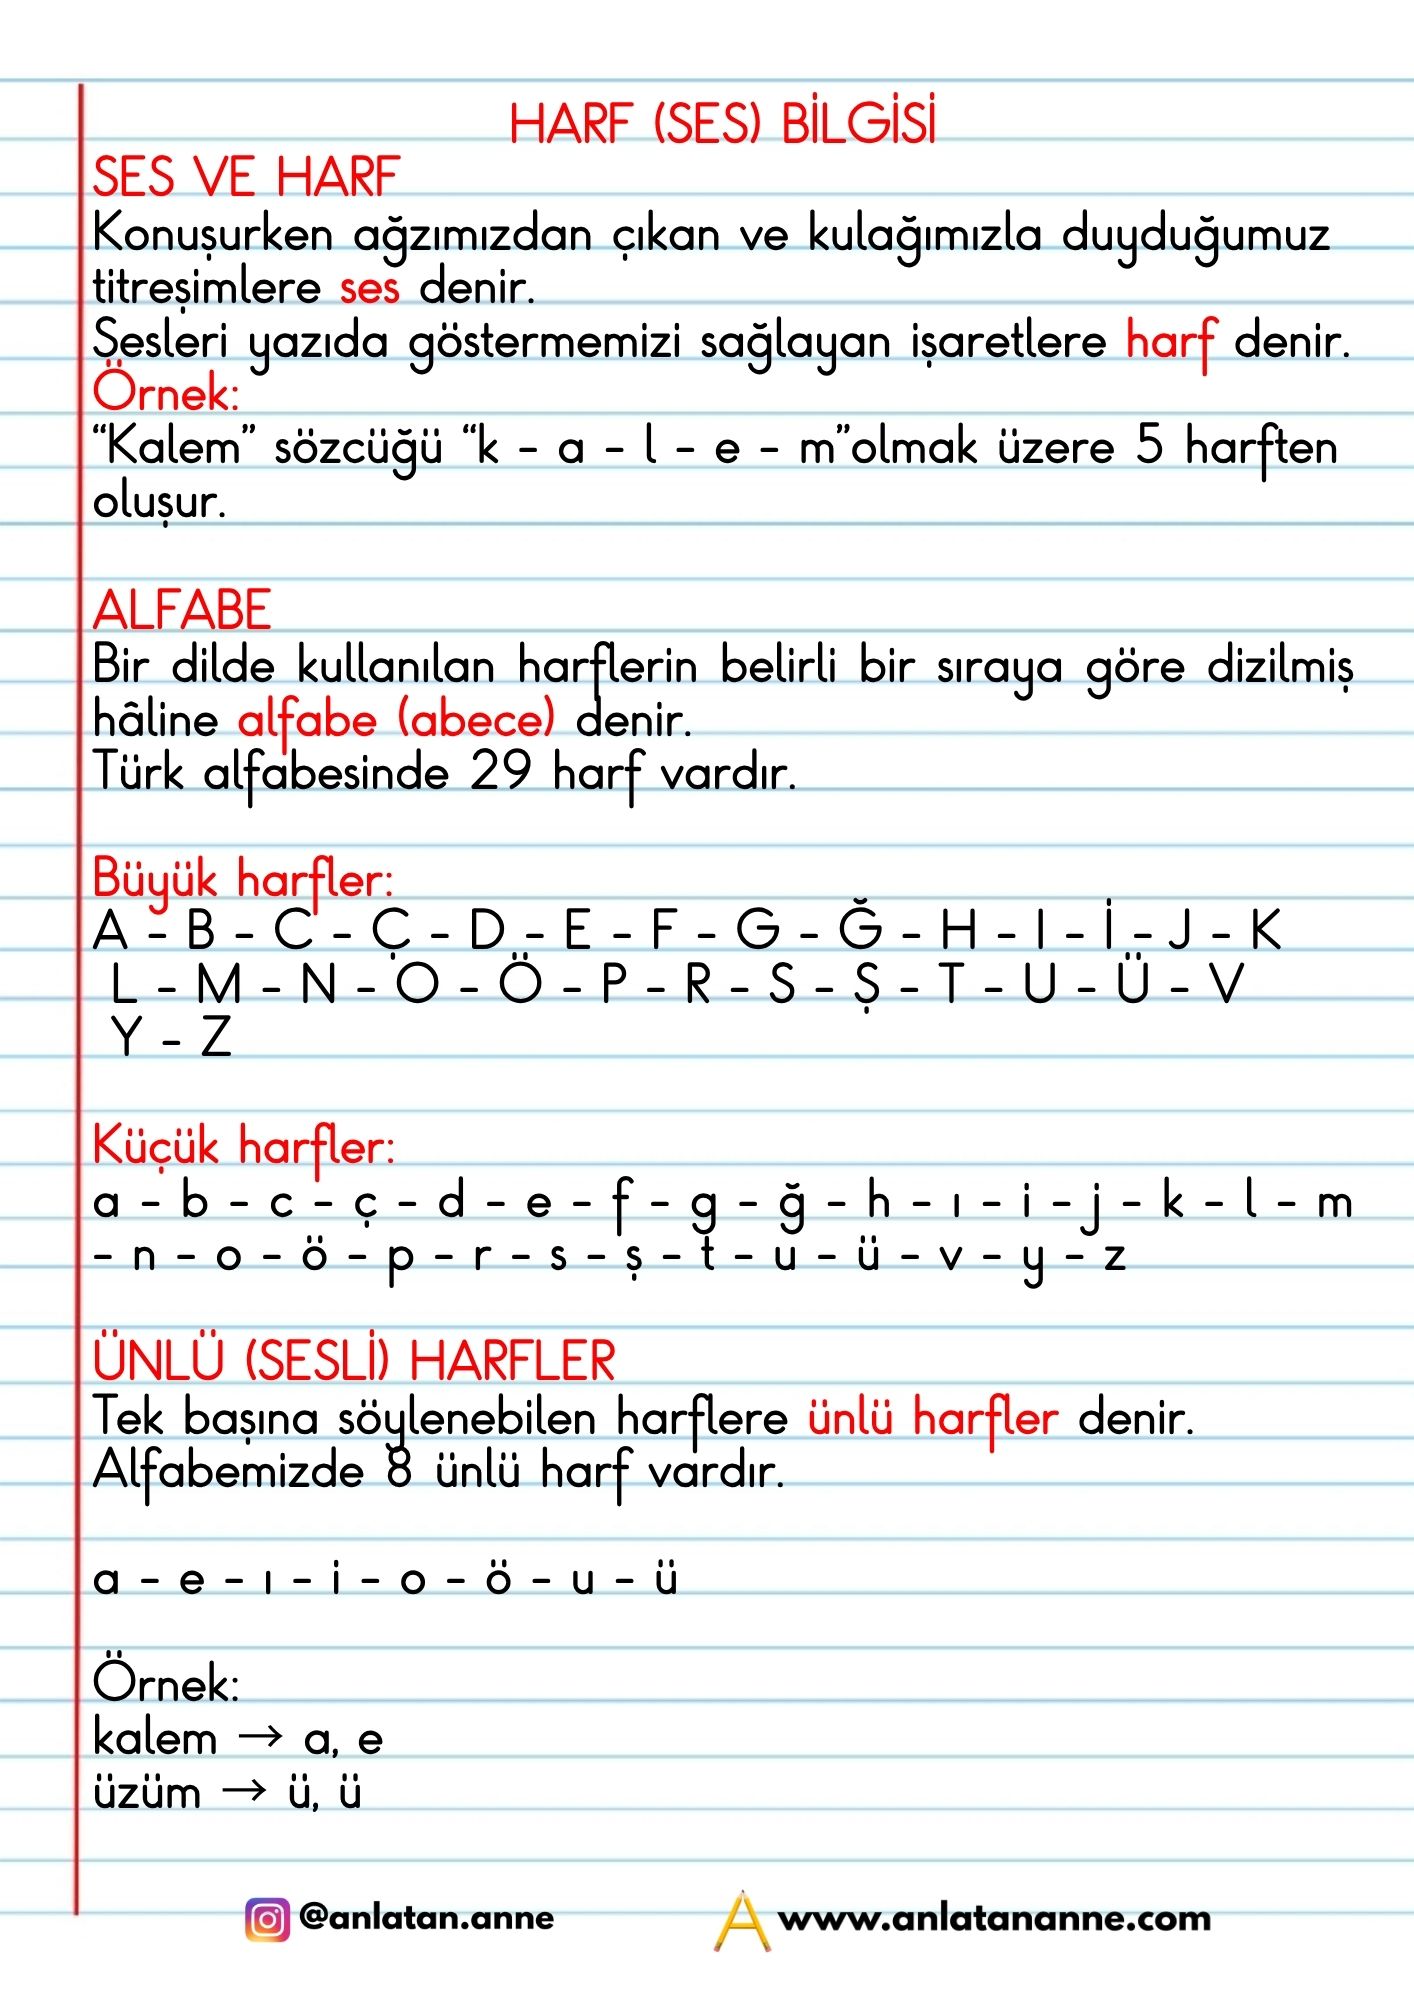 HARF (SES) BİLGİSİ
SES VE HARF
Konuşurken ağzımızdan çıkan ve kulağımızla duyduğumuz
titreşimlere ses denir.
Sesleri yazıda göstermemizi sağlayan işaretlere harf denir.
Örnek:
“Kalem” sözcüğü “k - a - l - e - m”olmak üzere 5 harften
oluşur.
ALFABE
Bir dilde kullanılan harflerin belirli bir sıraya göre dizilmiş
hâline alfabe (abece) denir.
Türk alfabesinde 29 harf vardır.
Büyük harfler:
A - B - C - Ç - D - E - F - G - Ğ - H - I - İ - J - K
L - M - N - O - Ö - P - R - S - Ş - T - U - Ü - V
Y - Z
Küçük harfler:
a - b - c - ç - d - e - f - g - ğ - h - ı - i - j - k - l - m
- n - o - ö - p - r - s - ş - t - u - ü - v - y - z
ÜNLÜ (SESLİ) HARFLER
Tek başına söylenebilen harflere ünlü harfler denir.
Alfabemizde 8 ünlü harf vardır.
a - e - ı - i - o - ö - u - ü
Örnek:
kalem → a, e
üzüm → ü, ü
@anlatan.anne
www.anlatananne.com